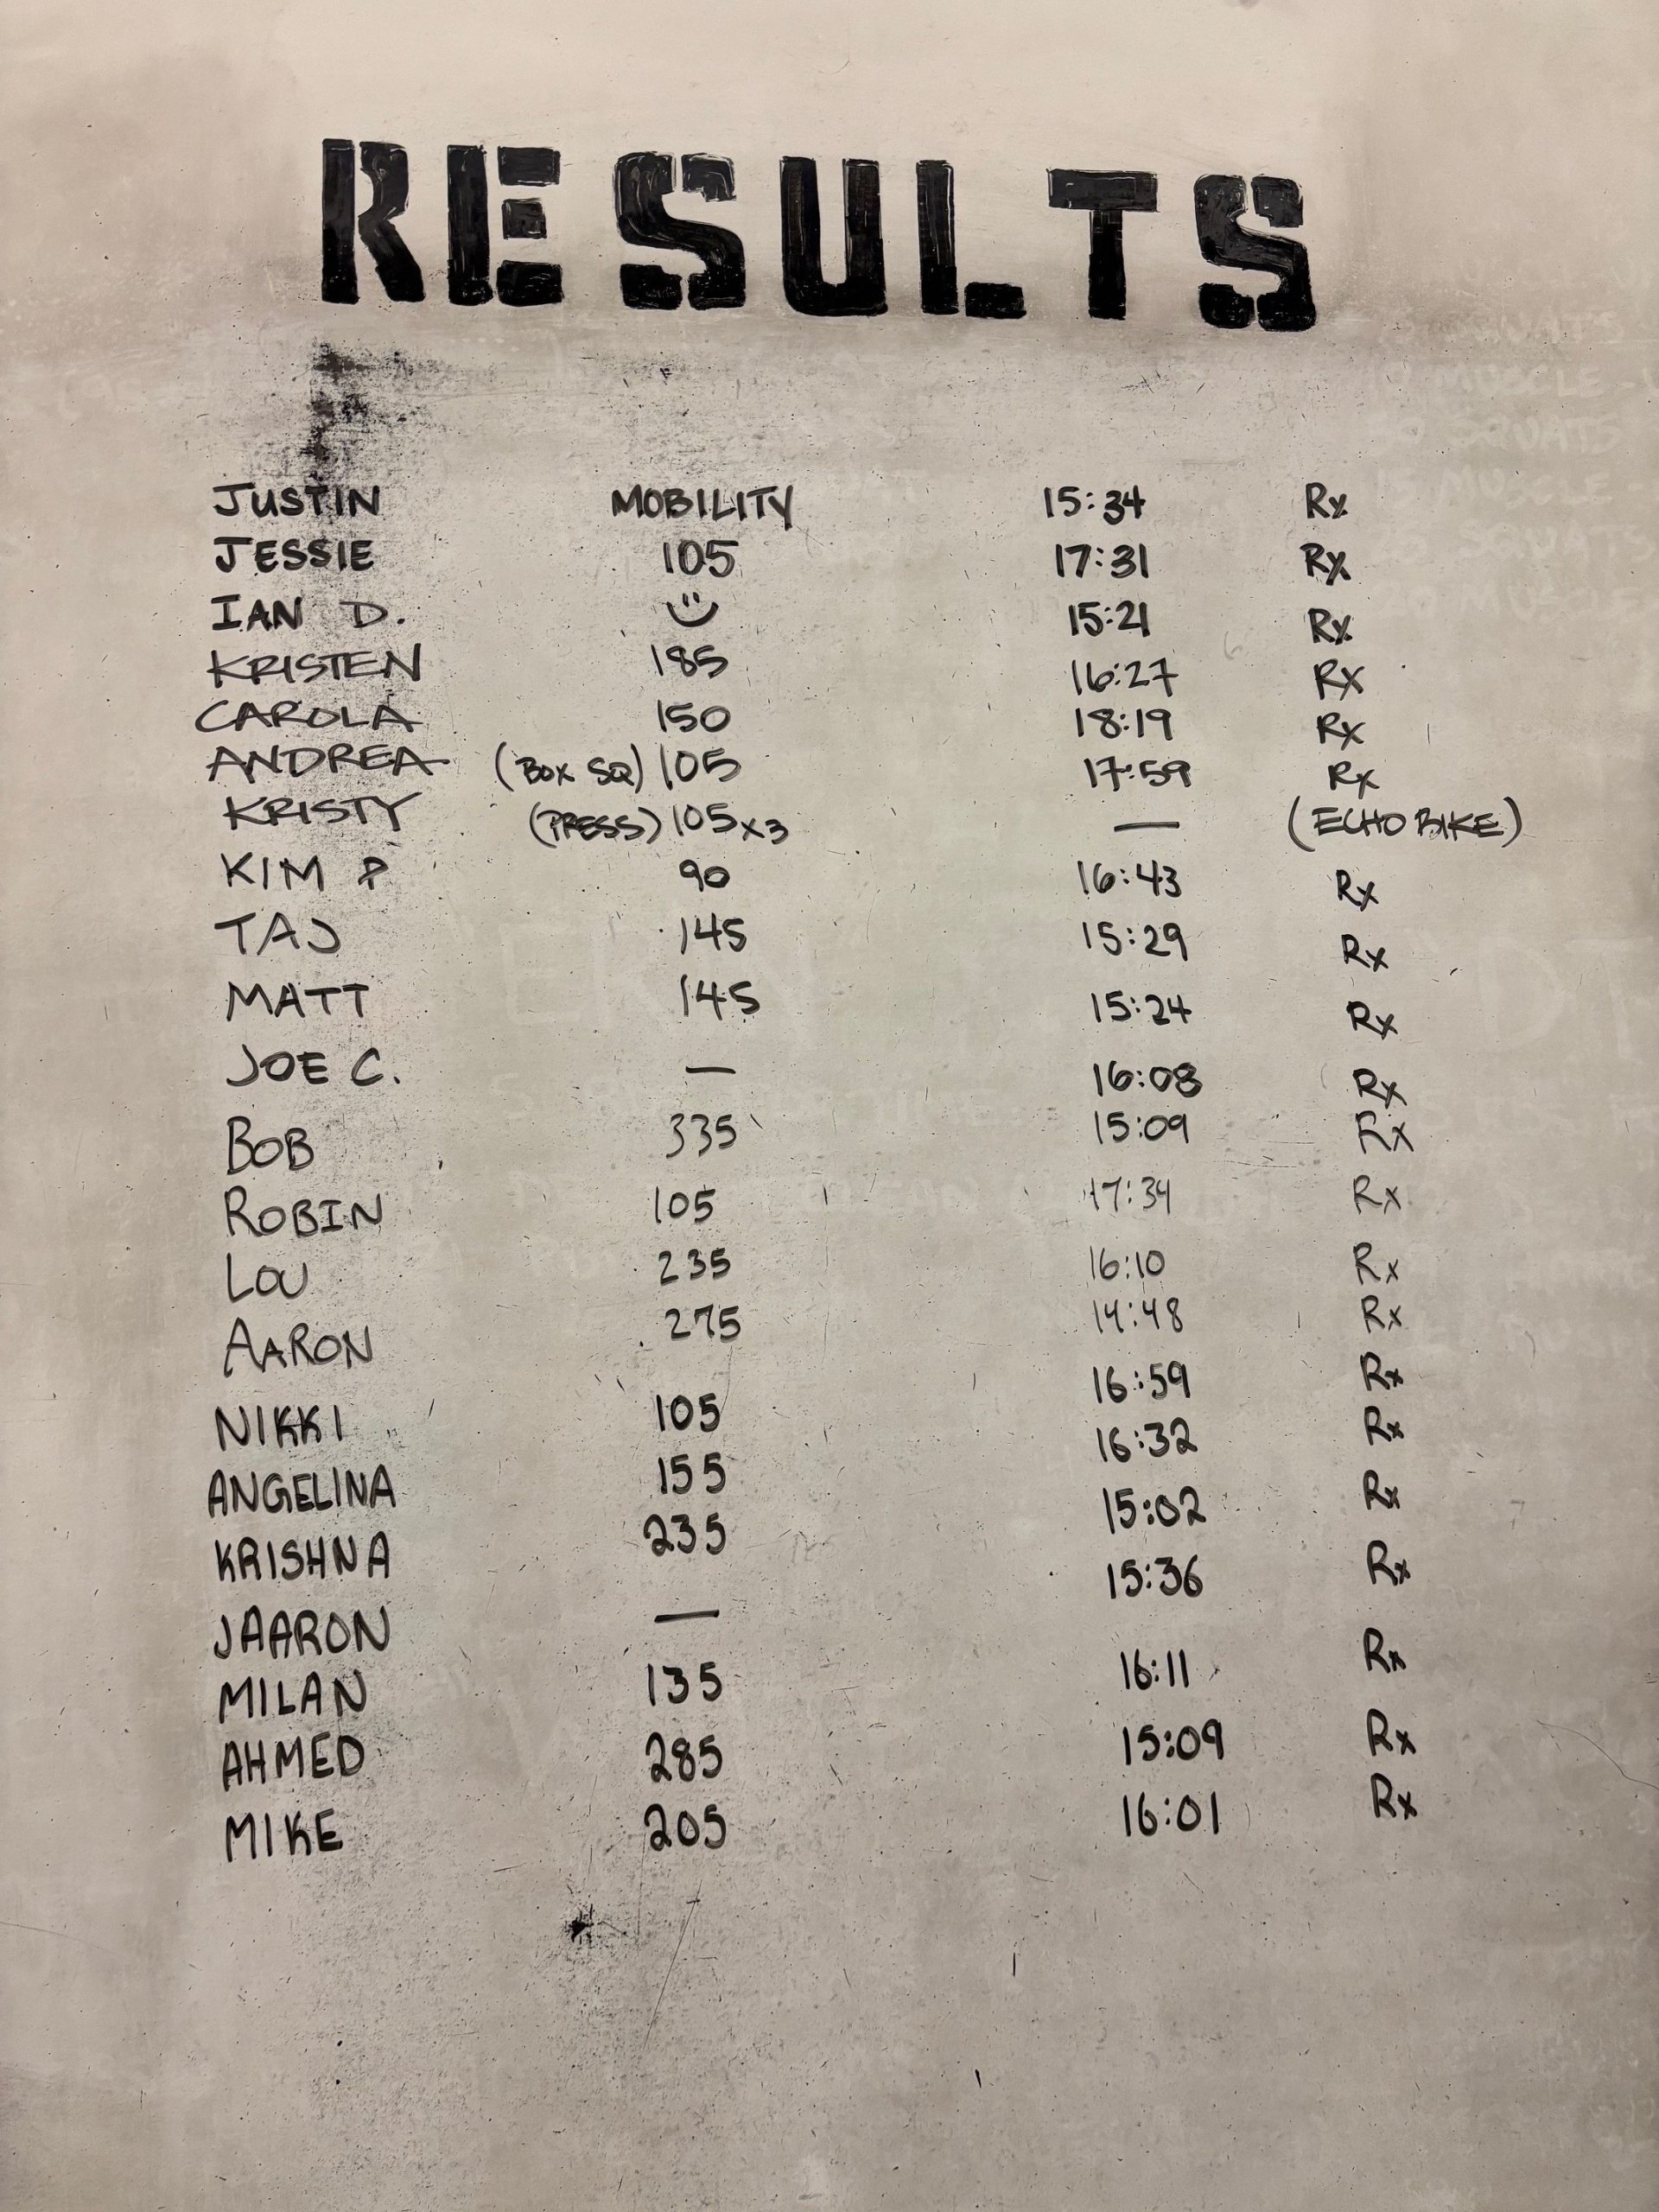 RESULTS
JUSTIN MOBILITY 15:34 Rx
JESSIE 105 17:31 Rx
IAN D. 15:21 Rx
KRISTEN 185 16:27 Rx
CAROLA 150 18:19 Rx
ANDREA (BOX SQ) 105 17:59 Rx
KRISTY (PRESS) 105x3 — (ECHO BIKE)
KIM P 90 16:43 Rx
TAJ 145 15:29 Rx
MATT 145 15:24 Rx
JOE C. — 16:08 Rx
BOB 335 15:09 Rx
ROBIN 105 17:34 Rx
LOU 235 16:10 Rx
AARON 275 14:48 Rx
NIKKI 105 16:59 Rx
ANGELINA 155 16:32 Rx
KRISHNA 235 15:02 Rx
JAARON — 15:36 Rx
MILAN 135 16:11 Rx
AHMED 285 15:09 Rx
MIKE 205 16:01 Rx